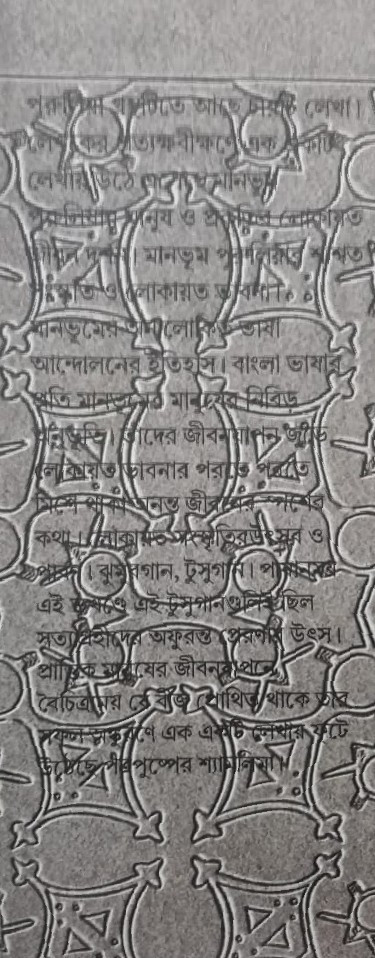 পুরুলিয়া গ্রন্থটিতে আছে চারটি লেখা।
লেখকের প্রত্যক্ষবীক্ষণে এক একটি
লেখায় উঠে এসেছে মানভূম
পুরুলিয়ার মানুষ ও প্রকৃতির লোকায়ত
জীবন দর্শন। মানভূম পুরুলিয়ার শাশ্বত
সংস্কৃতি ও লোকায়ত ভাবনা।
মানভূমের অনালোকিত ভাষা
আন্দোলনের ইতিহাস। বাংলা ভাষার
প্রতি মানভূমের মানুষের নিবিড়
অনুভূতি। তাদের জীবনযাপন জুড়ে
লোকায়ত ভাবনার পরতে পরতে
মিশে থাকা অনন্ত জীবনের স্পর্শের
কথা। লোকায়ত সংস্কৃতির উৎসব ও
পার্বণ। ঝুমুরগান, টুসুগান।
এই ভূখণ্ডে এই টুসুগানগুলিই ছিল
সত্যাগ্রহীদের অফুরন্ত প্রেরণার উৎস।
প্রান্তিক মানুষের জীবনযাপনে
বৈচিত্র্যের যে বীজ প্রোথিত থাকে তার
সফল অঙ্কুরণে এক একটি লেখায় ফুটে
উঠেছে পুষ্পের শ্যামলিমা।